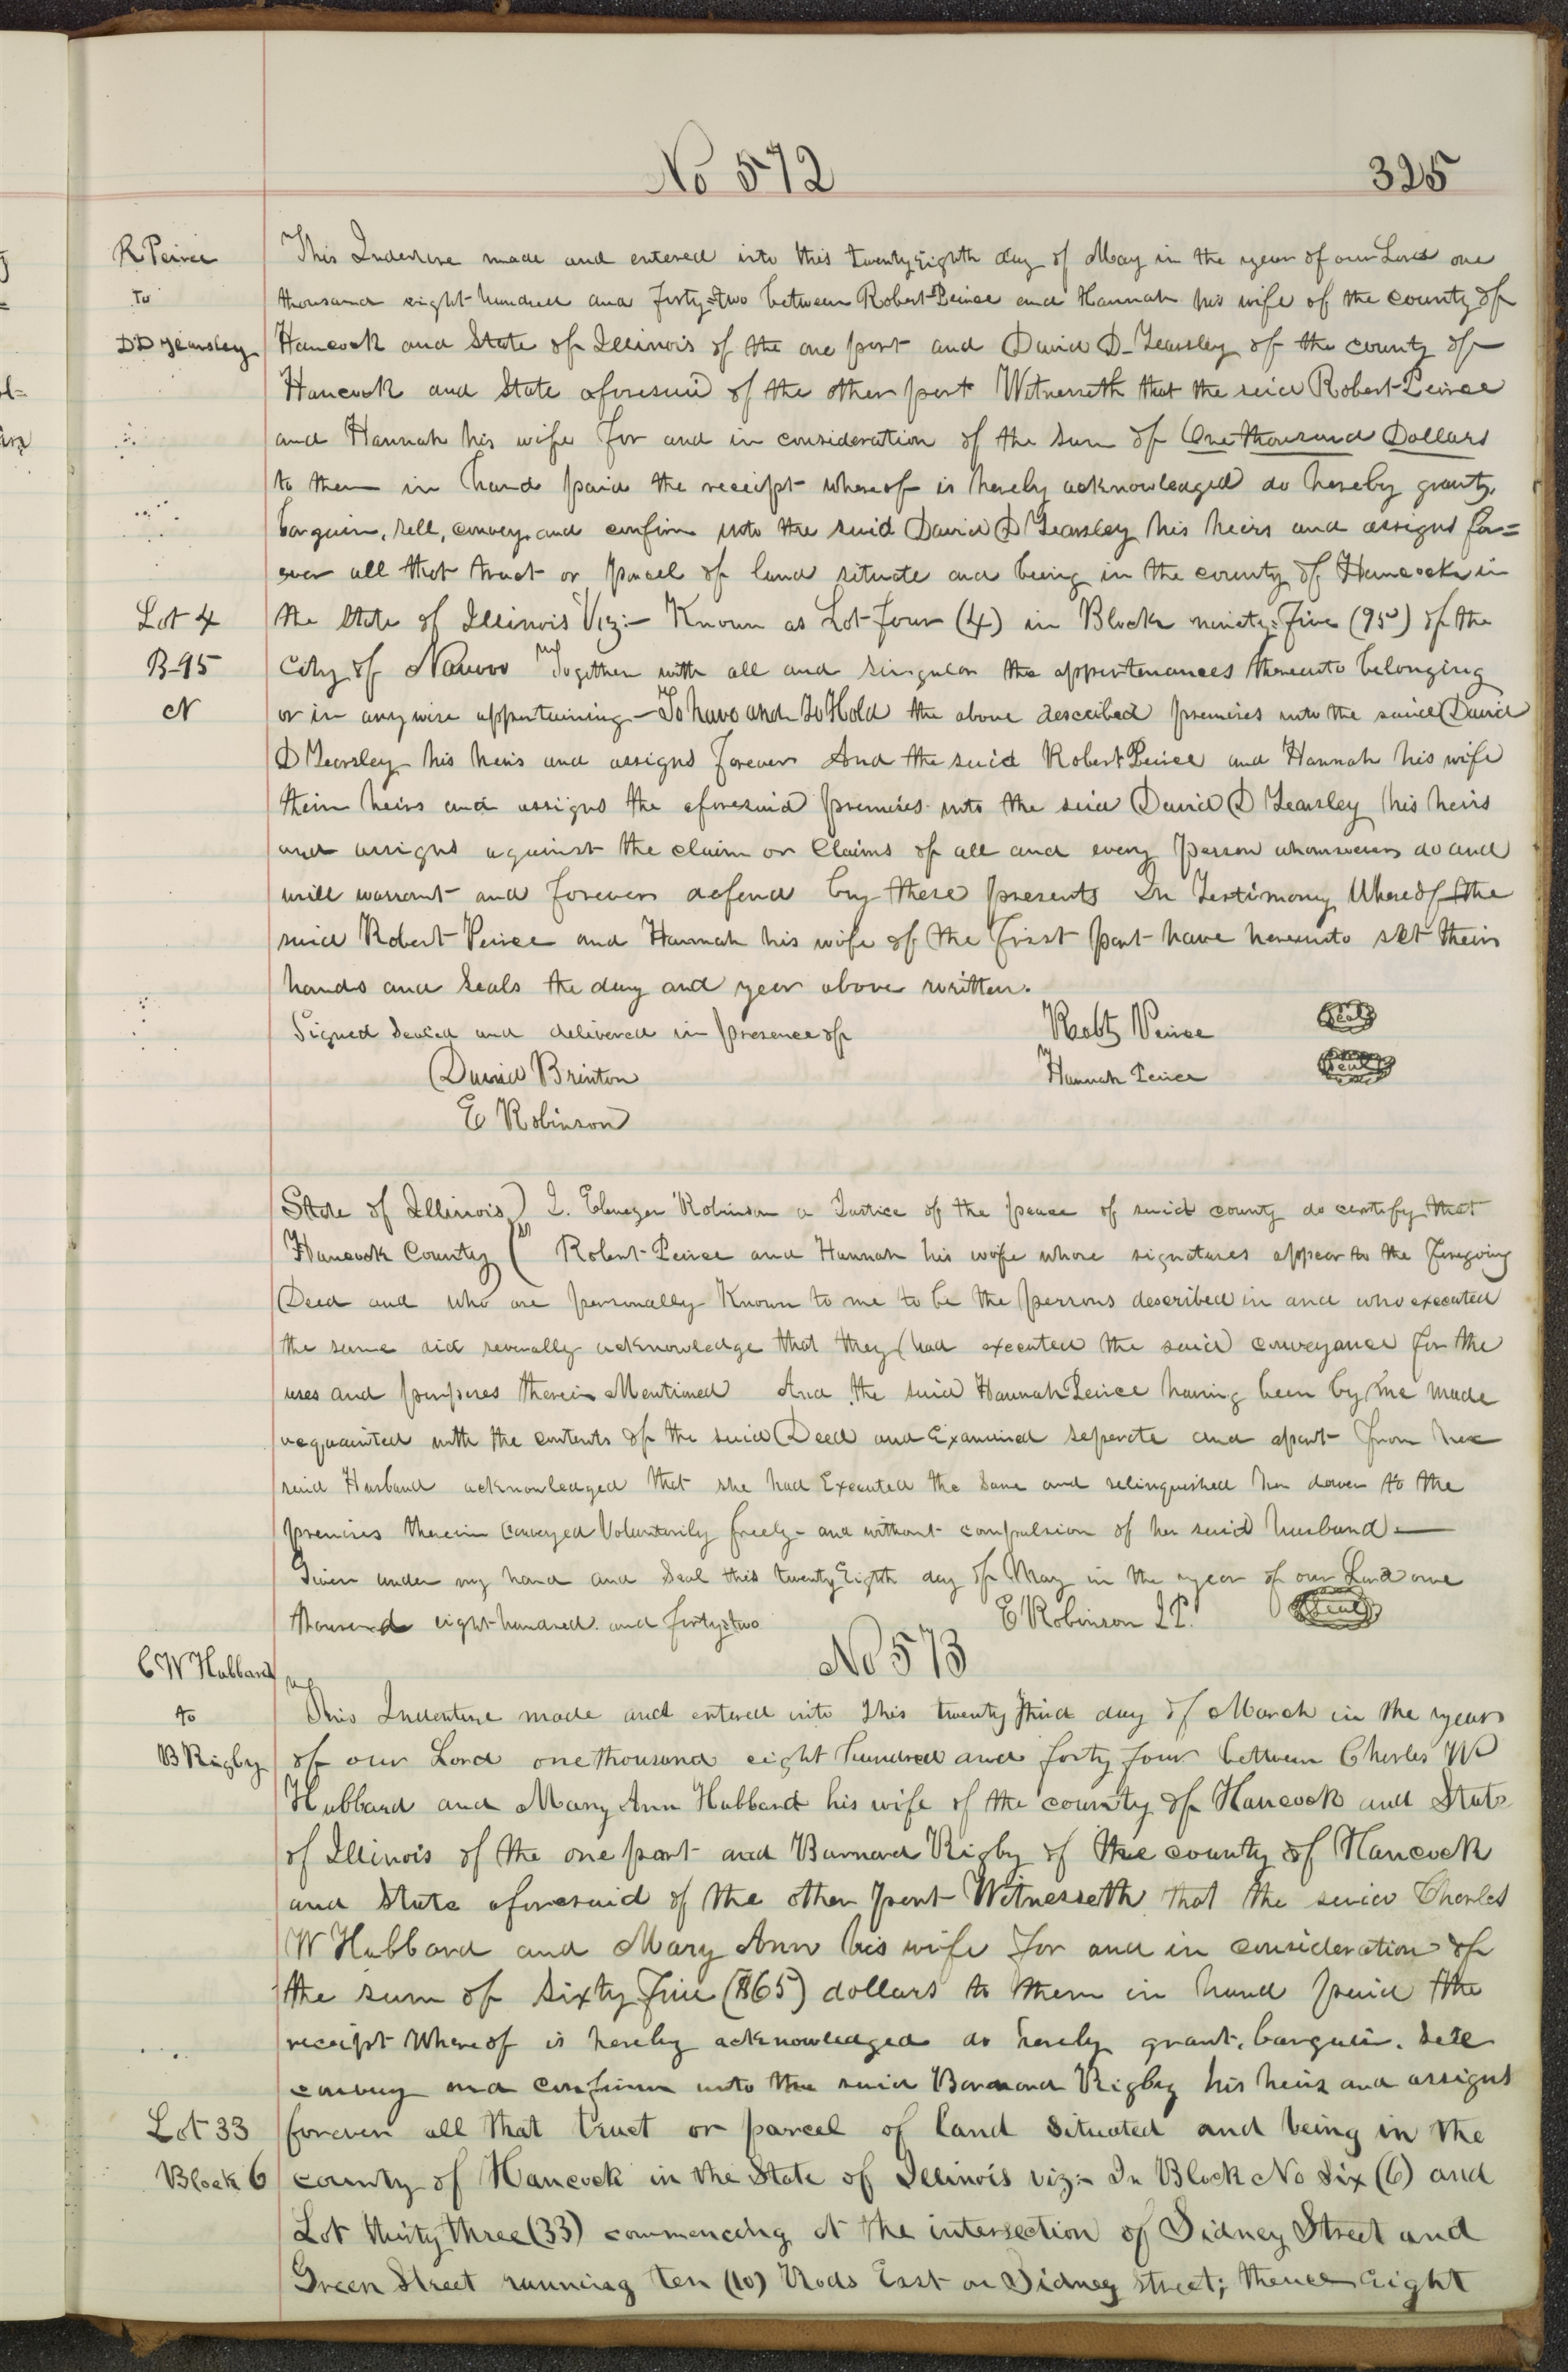 No 572
325
R Peirce
to
D D Yearsley
This Indenture made and entered into this twenty Eighth day of May in the year of our Lord one
thousand eight hundred and forty=two between Robert Peirce and Hannah his wife of the county of
Hancock and State of Illinois of the one part and David D. Yearsley of the county of
Hancock and State aforesaid of the other part Witnesseth that the said Robert Peirce
and Hannah his wife for and in consideration of the sum of One thousand Dollars
to them in hand paid the receipt whereof is hereby acknowledged do hereby grant,
bargain, sell, convey and confirm unto the said David D Yearsley his heirs and assigns for=
ever all that tract or parcel of land situate and being in the county of Hancock in
Lot 4
the State of Illinois Viz:- Known as Lot four (4) in Block ninety=five (95) of the
B-95
City of Nauvoo Together with all and singular the appurtenances thereunto belonging
N
or in any wise appertaining - To have and To Hold the above described premises unto the said David
D Yearsley his heirs and assigns forever And the said Robert Peirce and Hannah his wife
their heirs and assigns the aforesaid premises unto the said David D Yearsley his heirs
and assigns against the claim or Claims of all and every Person whomsoever do and
will warrant and forever defend by these presents In Testimony Whereof the
said Robert Peirce and Hannah his wife of the first part have hereunto set their
hands and Seals the day and year above written.
Signed Sealed and delivered in presence of
Robt Peirce Seal
David Brinton
Hannah Peirce Seal
E Robinson
State of Illinois ) I. Ebenezer Robinson a Justice of the peace of said county do certify that
Hancock County ( ss Robert Peirce and Hannah his wife whose signatures appear to the foregoing
Deed and who are personally Known to me to be the persons described in and who executed
the same did severally acknowledge that they had executed the said conveyance for the
uses and purposes therein Mentioned And the said Hannah Peirce having been by me made
acquainted with the contents of the said Deed and Examined seperate and apart from her
said Husband acknowledged that she had Executed the Same and relinquished her dower to the
premises therein Conveyed Voluntarily freely - and without compulsion of her said husband -
Given under my hand and Seal this twenty Eighth day of May in the year of our Lord one
thousand eight hundred and forty=two
E Robinson J.P. Seal
No 573
C W Hubbard
to
B Rigby
This Indenture made and entered into this twenty third day of March in the year
of our Lord one thousand eight hundred and forty four between Charles W
Hubbard and Mary Ann Hubbard his wife of the county of Hancock and State
of Illinois of the one part and Barnard Rigby of the county of Hancock
and State aforesaid of the other part Witnesseth that the said Charles
W Hubbard and Mary Ann his wife for and in consideration of
the sum of Sixty Five ($65) dollars to them in hand paid the
receipt Whereof is hereby acknowledged do hereby grant, bargain. sell
convey and confirm unto the said Barnard Rigby his heirs and assigns
Lot 33
forever all that tract or parcel of land situated and being in the
Block 6
county of Hancock in the State of Illinois viz:- In Block No Six (6) and
Lot thirty three (33) commencing at the intersection of Sidney Street and
Green Street running ten (10) Rods East on Sidney Street; thence eight